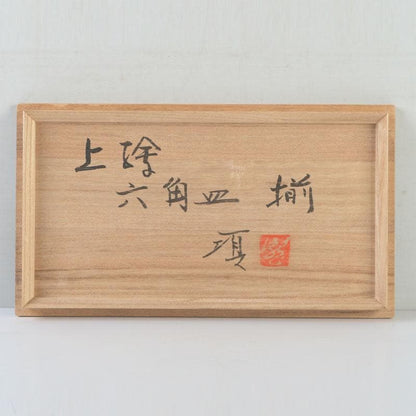 上絵
六角皿 揃
項